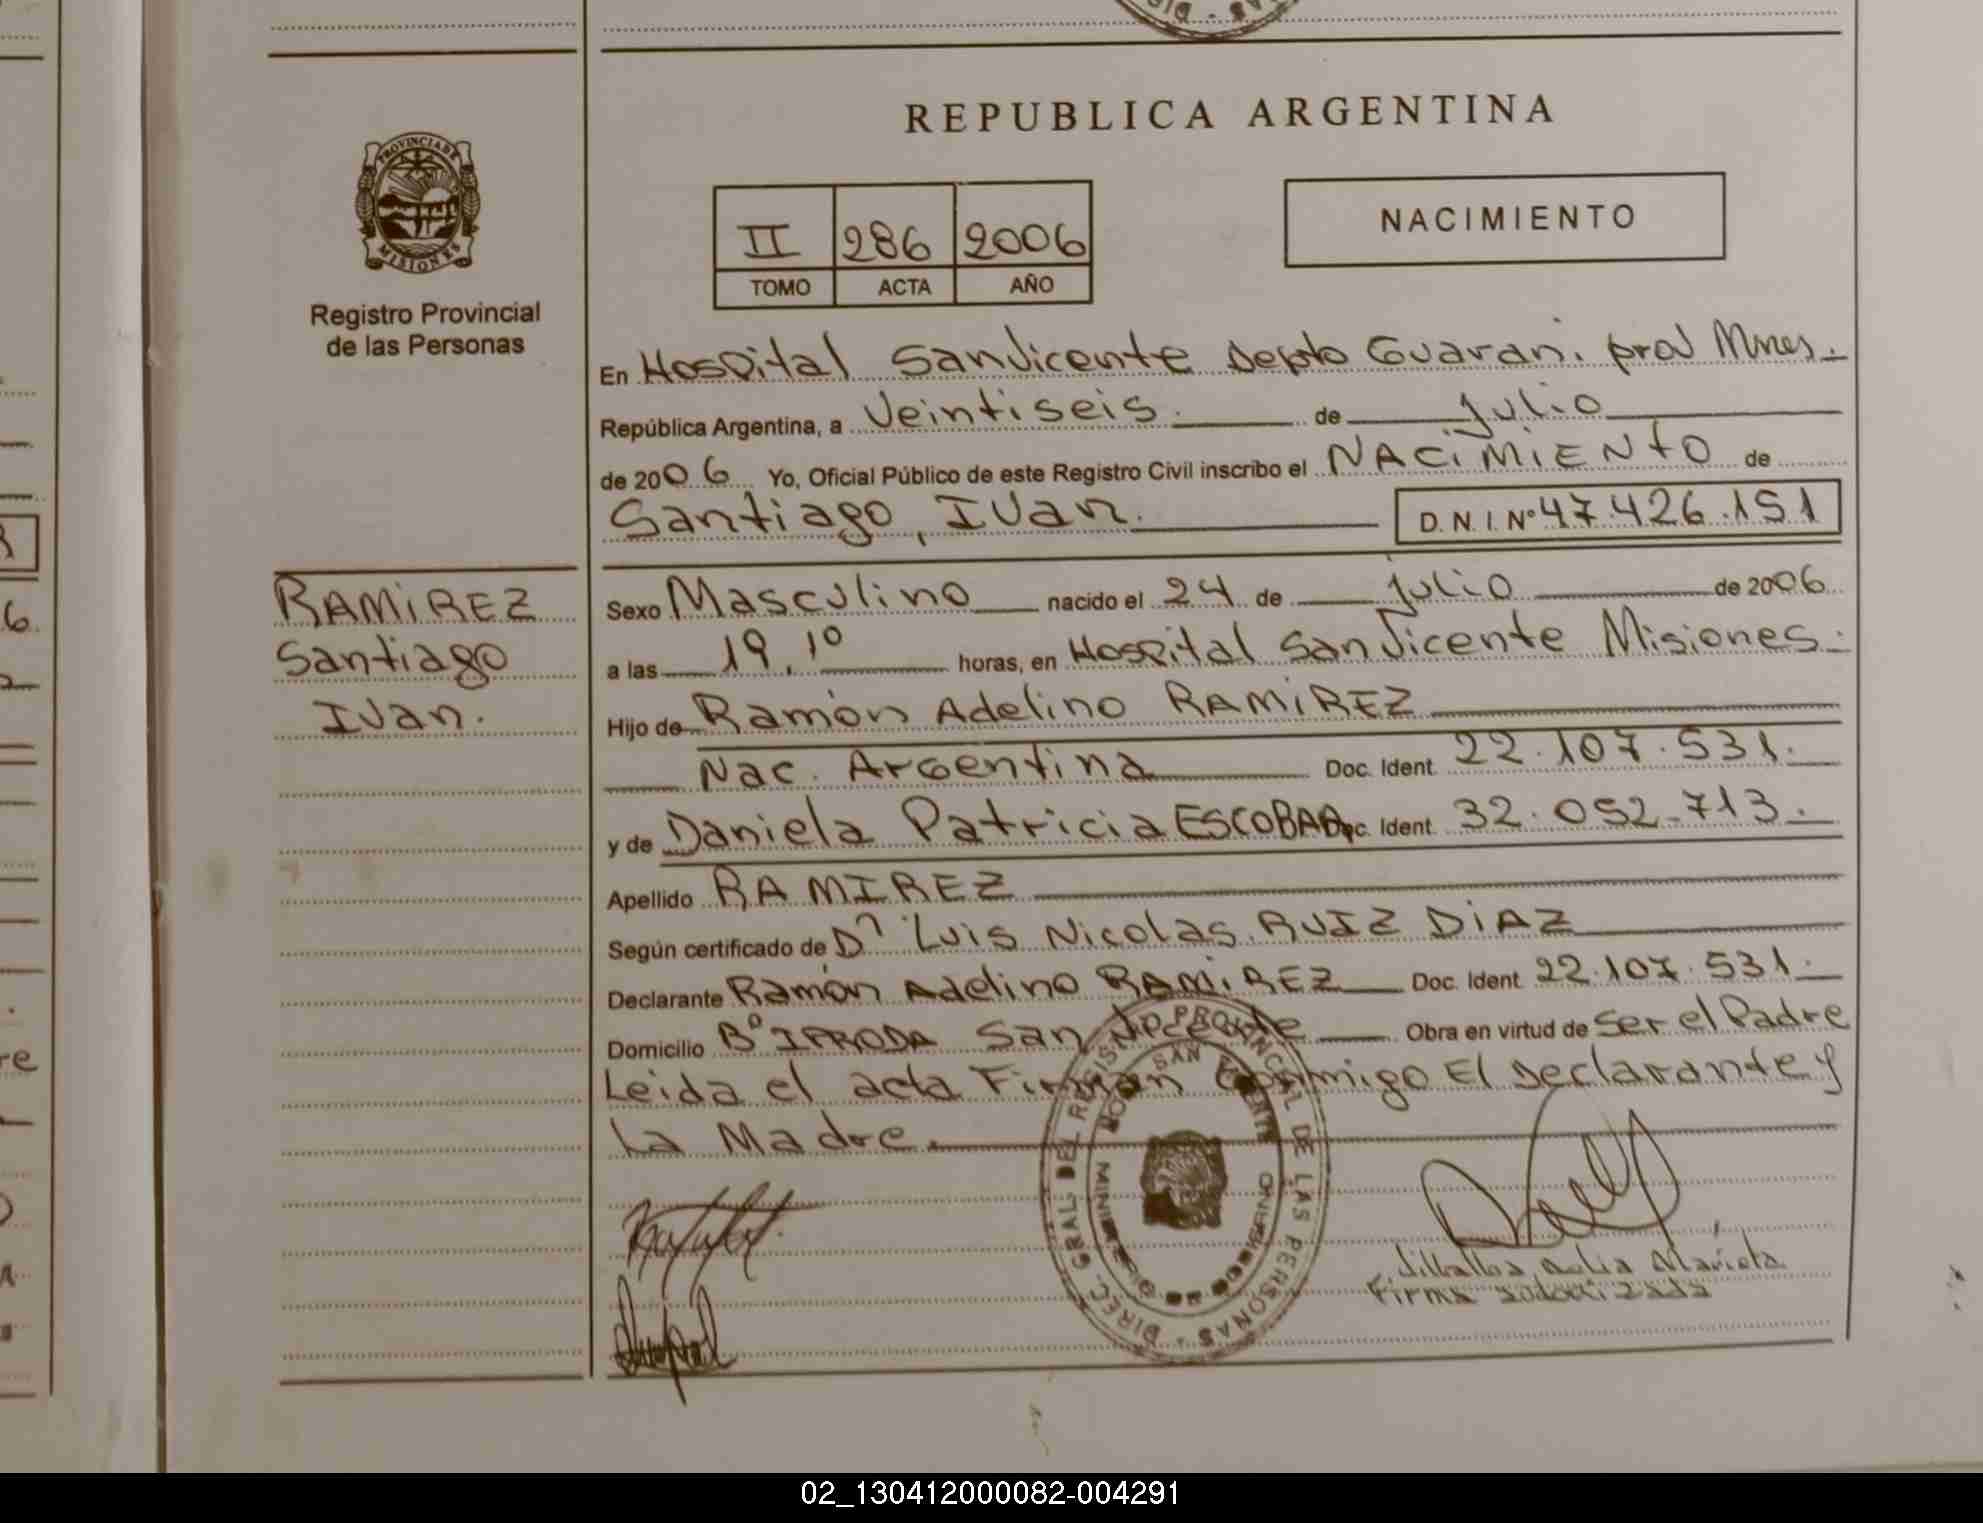 REPUBLICA ARGENTINA
PROVINCIA DE
MISIONES
Registro Provincial
de las Personas
II 286 2006
TOMO ACTA AÑO
NACIMIENTO
En Hospital San Vicente Depto Guarani. prov Mnes.
República Argentina, a Veintiseis. de julio
de 2006 Yo, Oficial Público de este Registro Civil inscribo el NACIMIENTO de
Santiago, Ivan. D.N.I.Nº 47.426.151
RAMIREZ
Santiago
Ivan.
Sexo Masculino nacido el 24 de julio de 2006
a las 19.10 horas, en Hospital San Vicente Misiones.
Hijo de Ramón Adelino RAMIREZ
Nac. Argentina Doc. Ident. 22.107.531.
y de Daniela Patricia ESCOBAR Doc. Ident. 32.052.713.
Apellido RAMIREZ
Según certificado de Dr Luis Nicolas RUIZ DIAZ
Declarante Ramón Adelino RAMIREZ Doc. Ident. 22.107.531.
Domicilio Bº IPRODA San Vicente Obra en virtud de Ser el Padre
Leida el acta Firman Conmigo El Declarante y
La Madre.
DIREC. GRAL. DEL REGISTRO PROVINCIAL DE LAS PERSONAS
SAN VICENTE
Firma autorizada
02_130412000082-004291